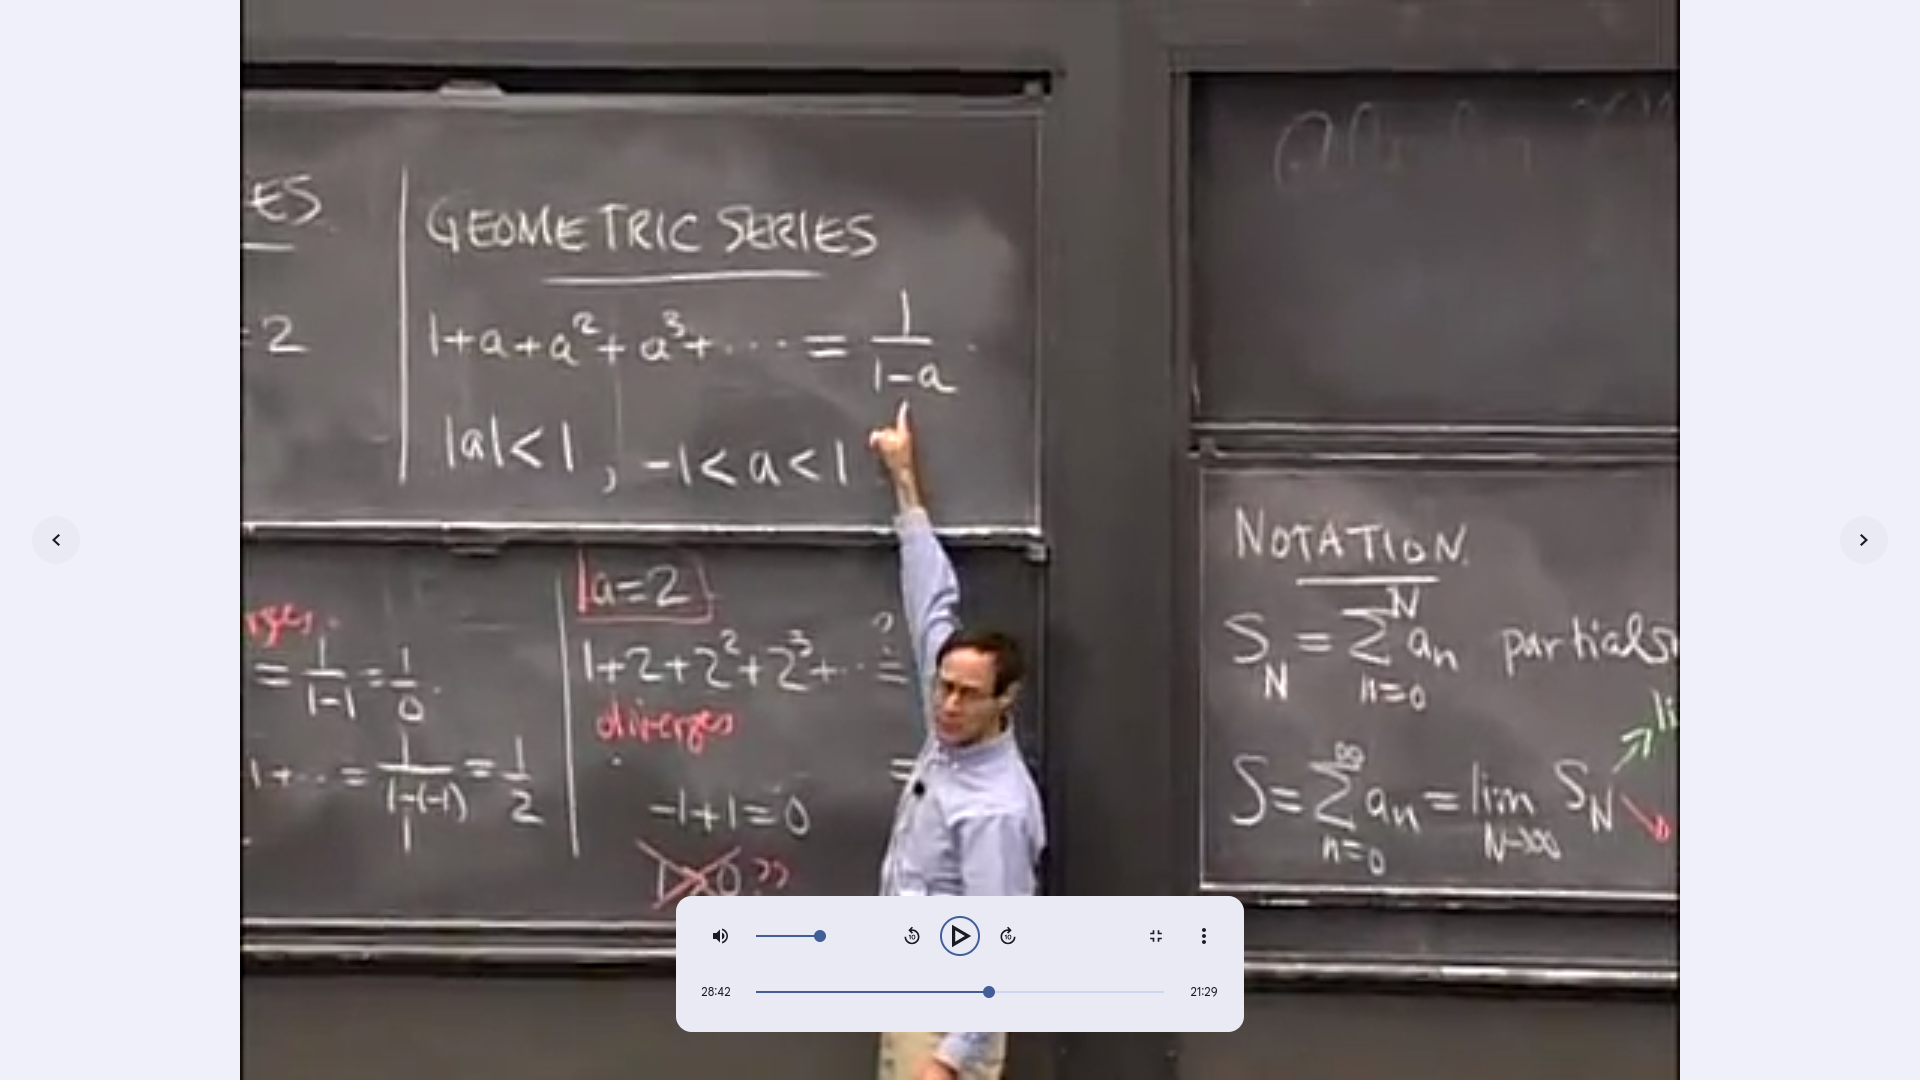 ES
= 2
GEOMETRIC SERIES
1+a+a²+a³+⋯ = 1/(1-a)
|a|<1, -1<a<1
rges.
= 1/(1-1) = 1/0.
1+⋯ = 1/(1-(-1)) = 1/2
a=2
1+2+2²+2³+⋯ ?=
diverges
=
-1+1=0
??
NOTATION
S_N = ∑_{n=0}^{N} a_n partial s
li
S = ∑_{n=0}^{∞} a_n = lim_{N→∞} S_N
10
10
28:42
21:29